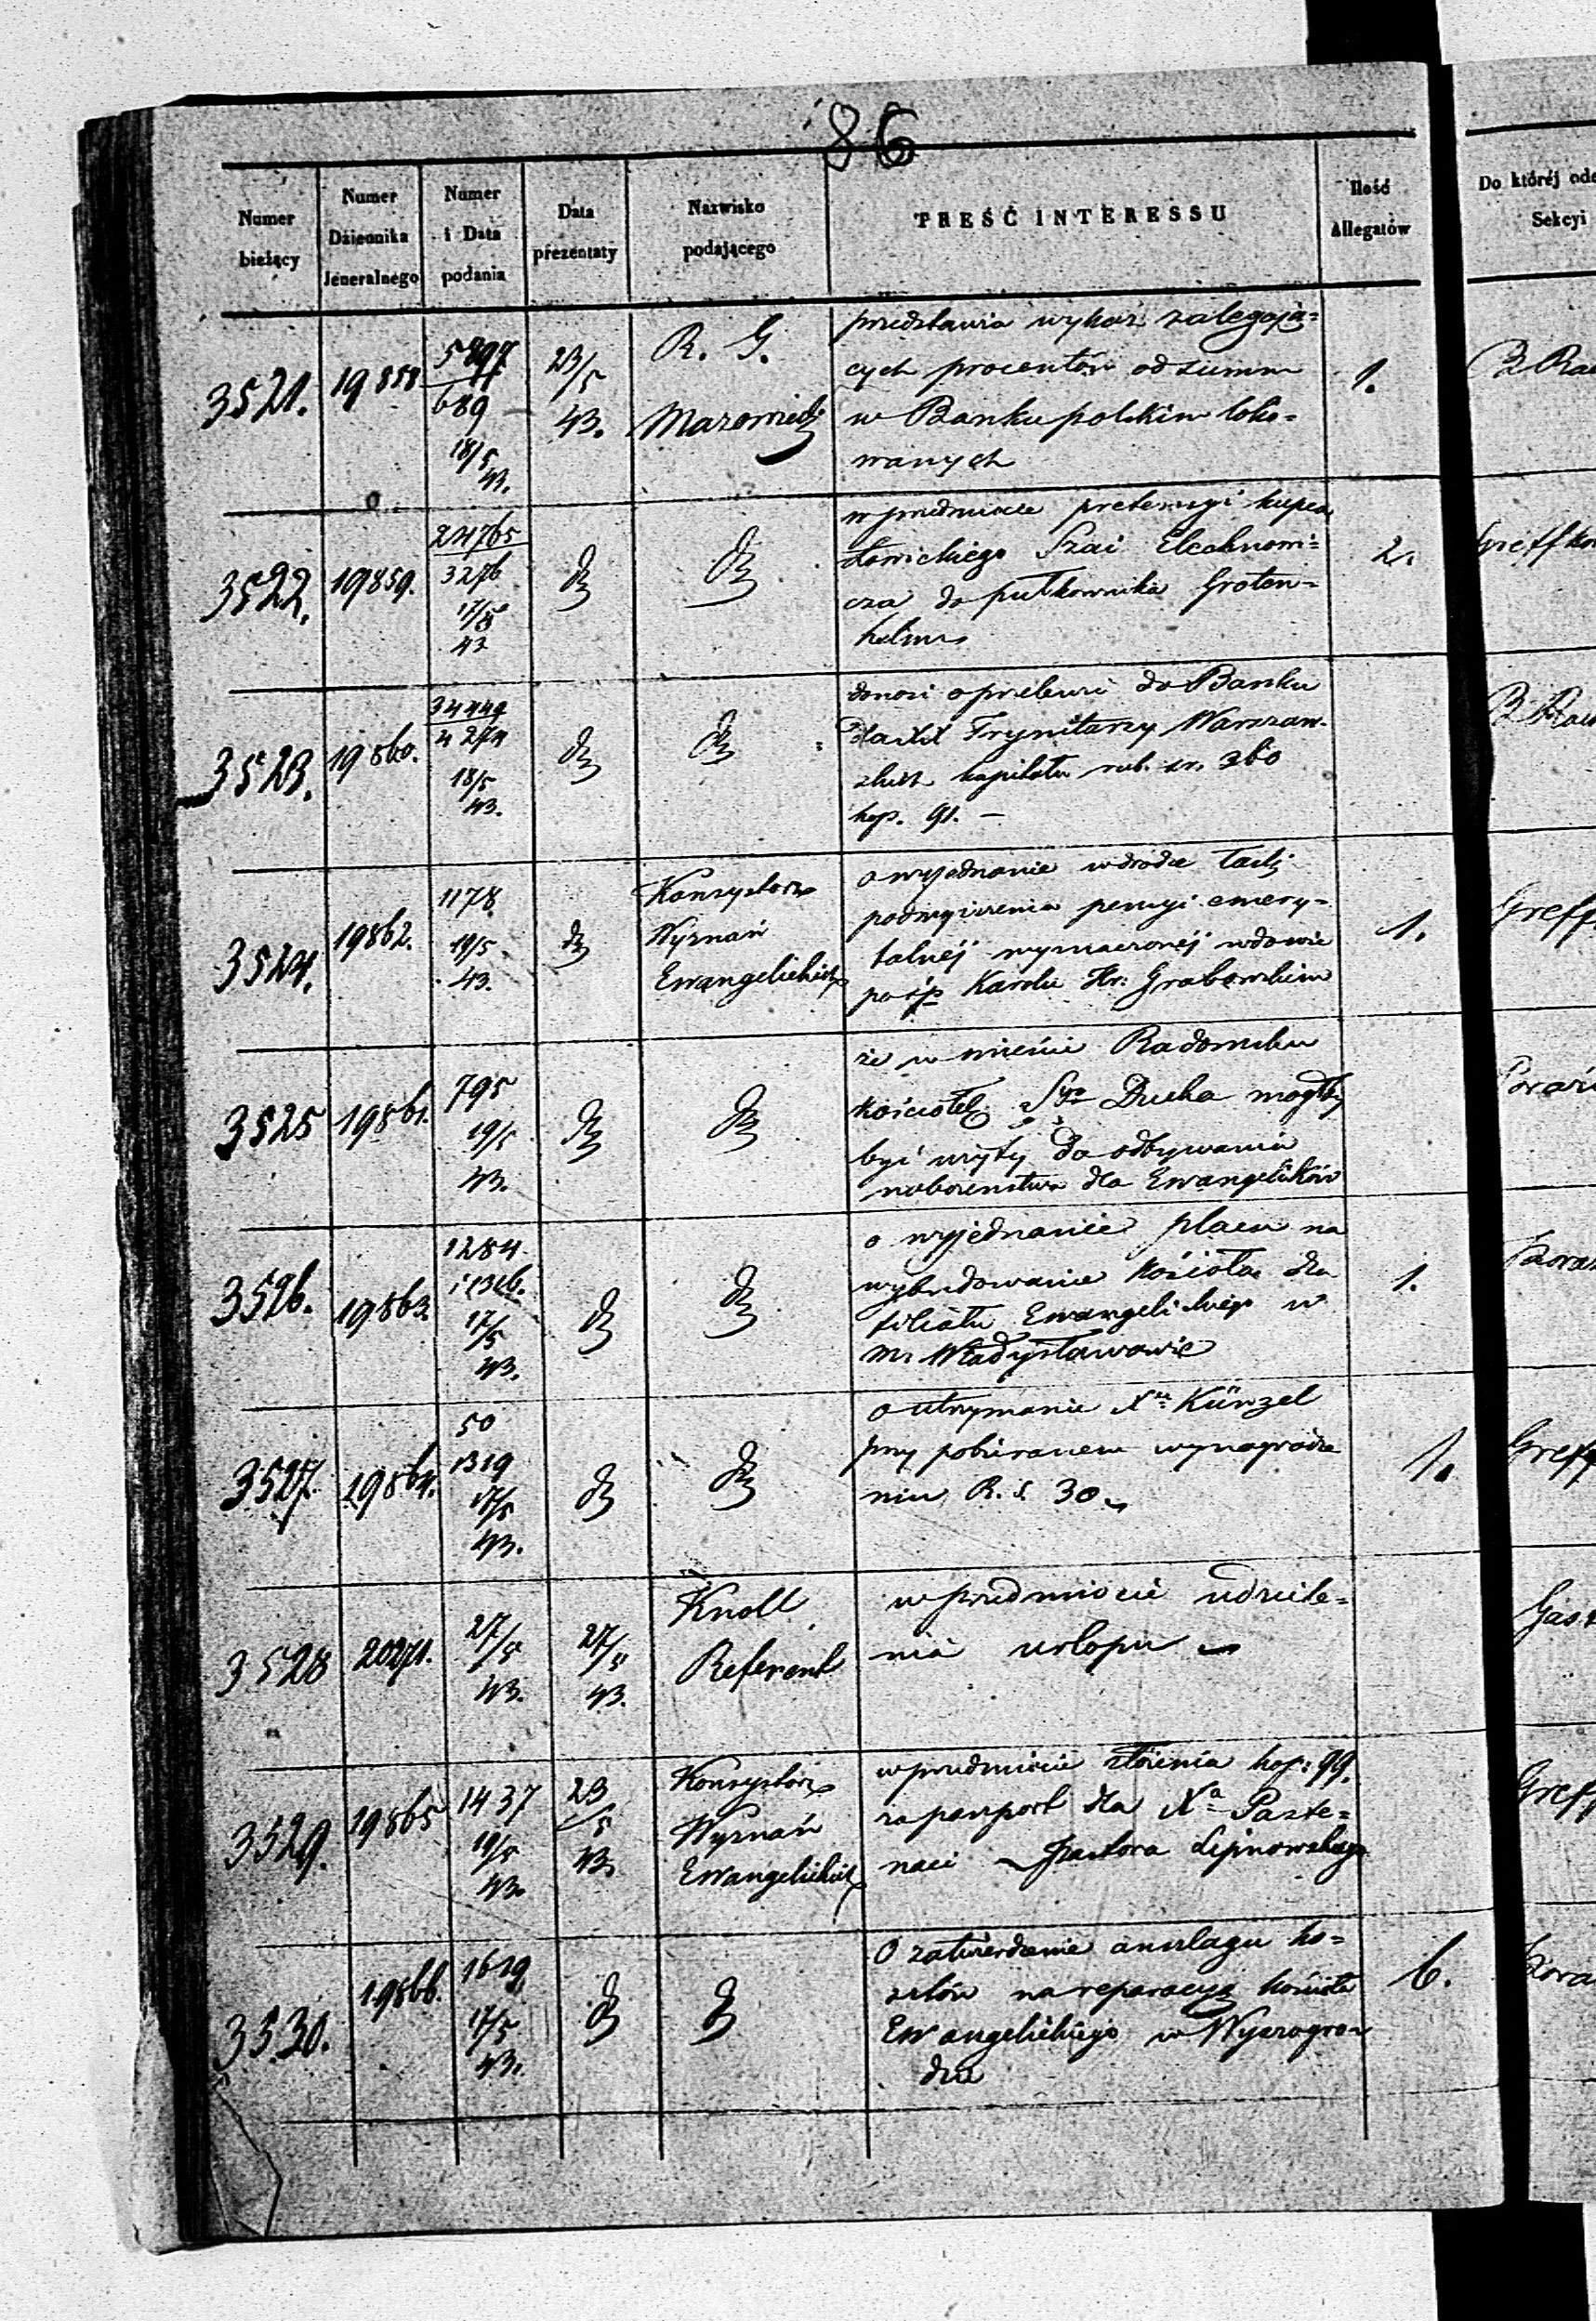 86
Numer bieżący
Numer Dziennika Jeneralnego
Numer i Data podania
Data prezentaty
Nazwisko podającego
TREŚĆ INTERESSU
Ilość Allegatów
Do której
Sekcyi
3521.
19858
689
18/5
43.
23/5
43.
R. G.
Mazowiecki
przedstawia wykaz zalegają=
cych procentów od summ
w Banku polskim loko=
wanych
1.
3522.
19859.
24765
3276
17/5
43
w przedmiocie pretensyi kupca
Łowickiego Szai Elechnowi=
cza do pułkownika Groten=
helm
2.
3523.
19860.
4274
18/5
43.
donosi o przelewie do Banku
Trynitarzy Warszaw=
skich kapitału rub. sr. 360
kop. 91. —
3524.
19862.
1178
19/5
43.
Konsystorz
Wyznań
Ewangelickich
o wyjednanie w drodze łaski
podwyższenia pensyi emery=
talnéj wyznaczonéj wdowie
po ś.p. Karolu Hr. Grabowskim
1.
Greff
3525
19861.
795
19/5
43.
że w mieście Radomsku
kościołek Sgo Ducha mógłby
być użyty do odbywania
nabożeństwa dla Ewangelików
3526.
19863.
1284
17/5
43.
o wyjednanie placu na
wybudowanie kościoła dla
filiału Ewangelickiego w
m. Władysławowie
1.
3527.
19864.
50
1319
17/5
43.
o utrzymanie Xa Künzel
przy pobieranem wynagrodze
niu R. s. 30
1.
Greff
3528
20271.
27/5
43.
27/5
43.
Knoll
Referent
w przedmiocie udziele=
nia urlopu
3529.
19865
1437
19/5
43.
23/5
43.
Konsystorz
Wyznań
Ewangelickich
w przedmiocie złożenia kop: 99.
za paszport dla Xa Paste=
naci Pastora Lipnowskiego
Greff
3530.
19866.
1629
17/5
43.
O zatwierdzenie anszlagu ko=
sztów na reparacyą kościoła
Ewangelickiego w Wyszogro=
dzie
6.